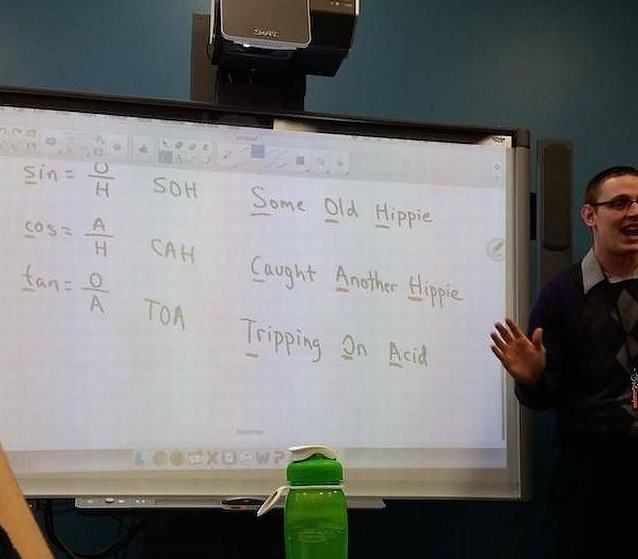 SMART
sin = O/H SOH Some Old Hippie
cos = A/H CAH Caught Another Hippie
tan = O/A TOA Tripping On Acid